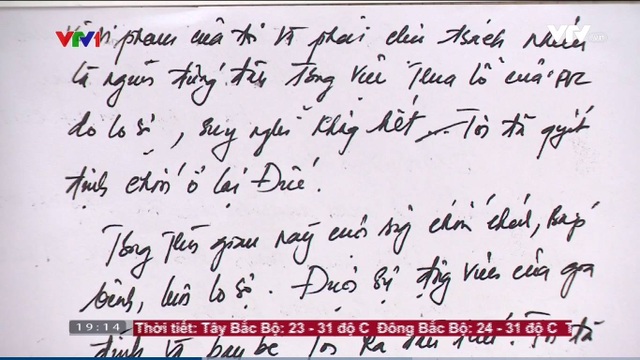 VTV1
VTV.vn
vi phạm của tôi và phải chịu trách nhiệm
là người đứng đầu trong việc thua lỗ của PVC
do lo sợ, suy nghĩ không hết ... Tôi đã quyết
định trốn ở lại Đức.
Trong thời gian này cuộc sống trốn tránh, bấp
bênh, luôn lo sợ. Được sự động viên của gia
đình và bạn bè Tôi ra đầu thú. Tôi đã
19:14 Thời tiết: Tây Bắc Bộ: 23 - 31 độ C Đông Bắc Bộ: 24 - 31 độ C T